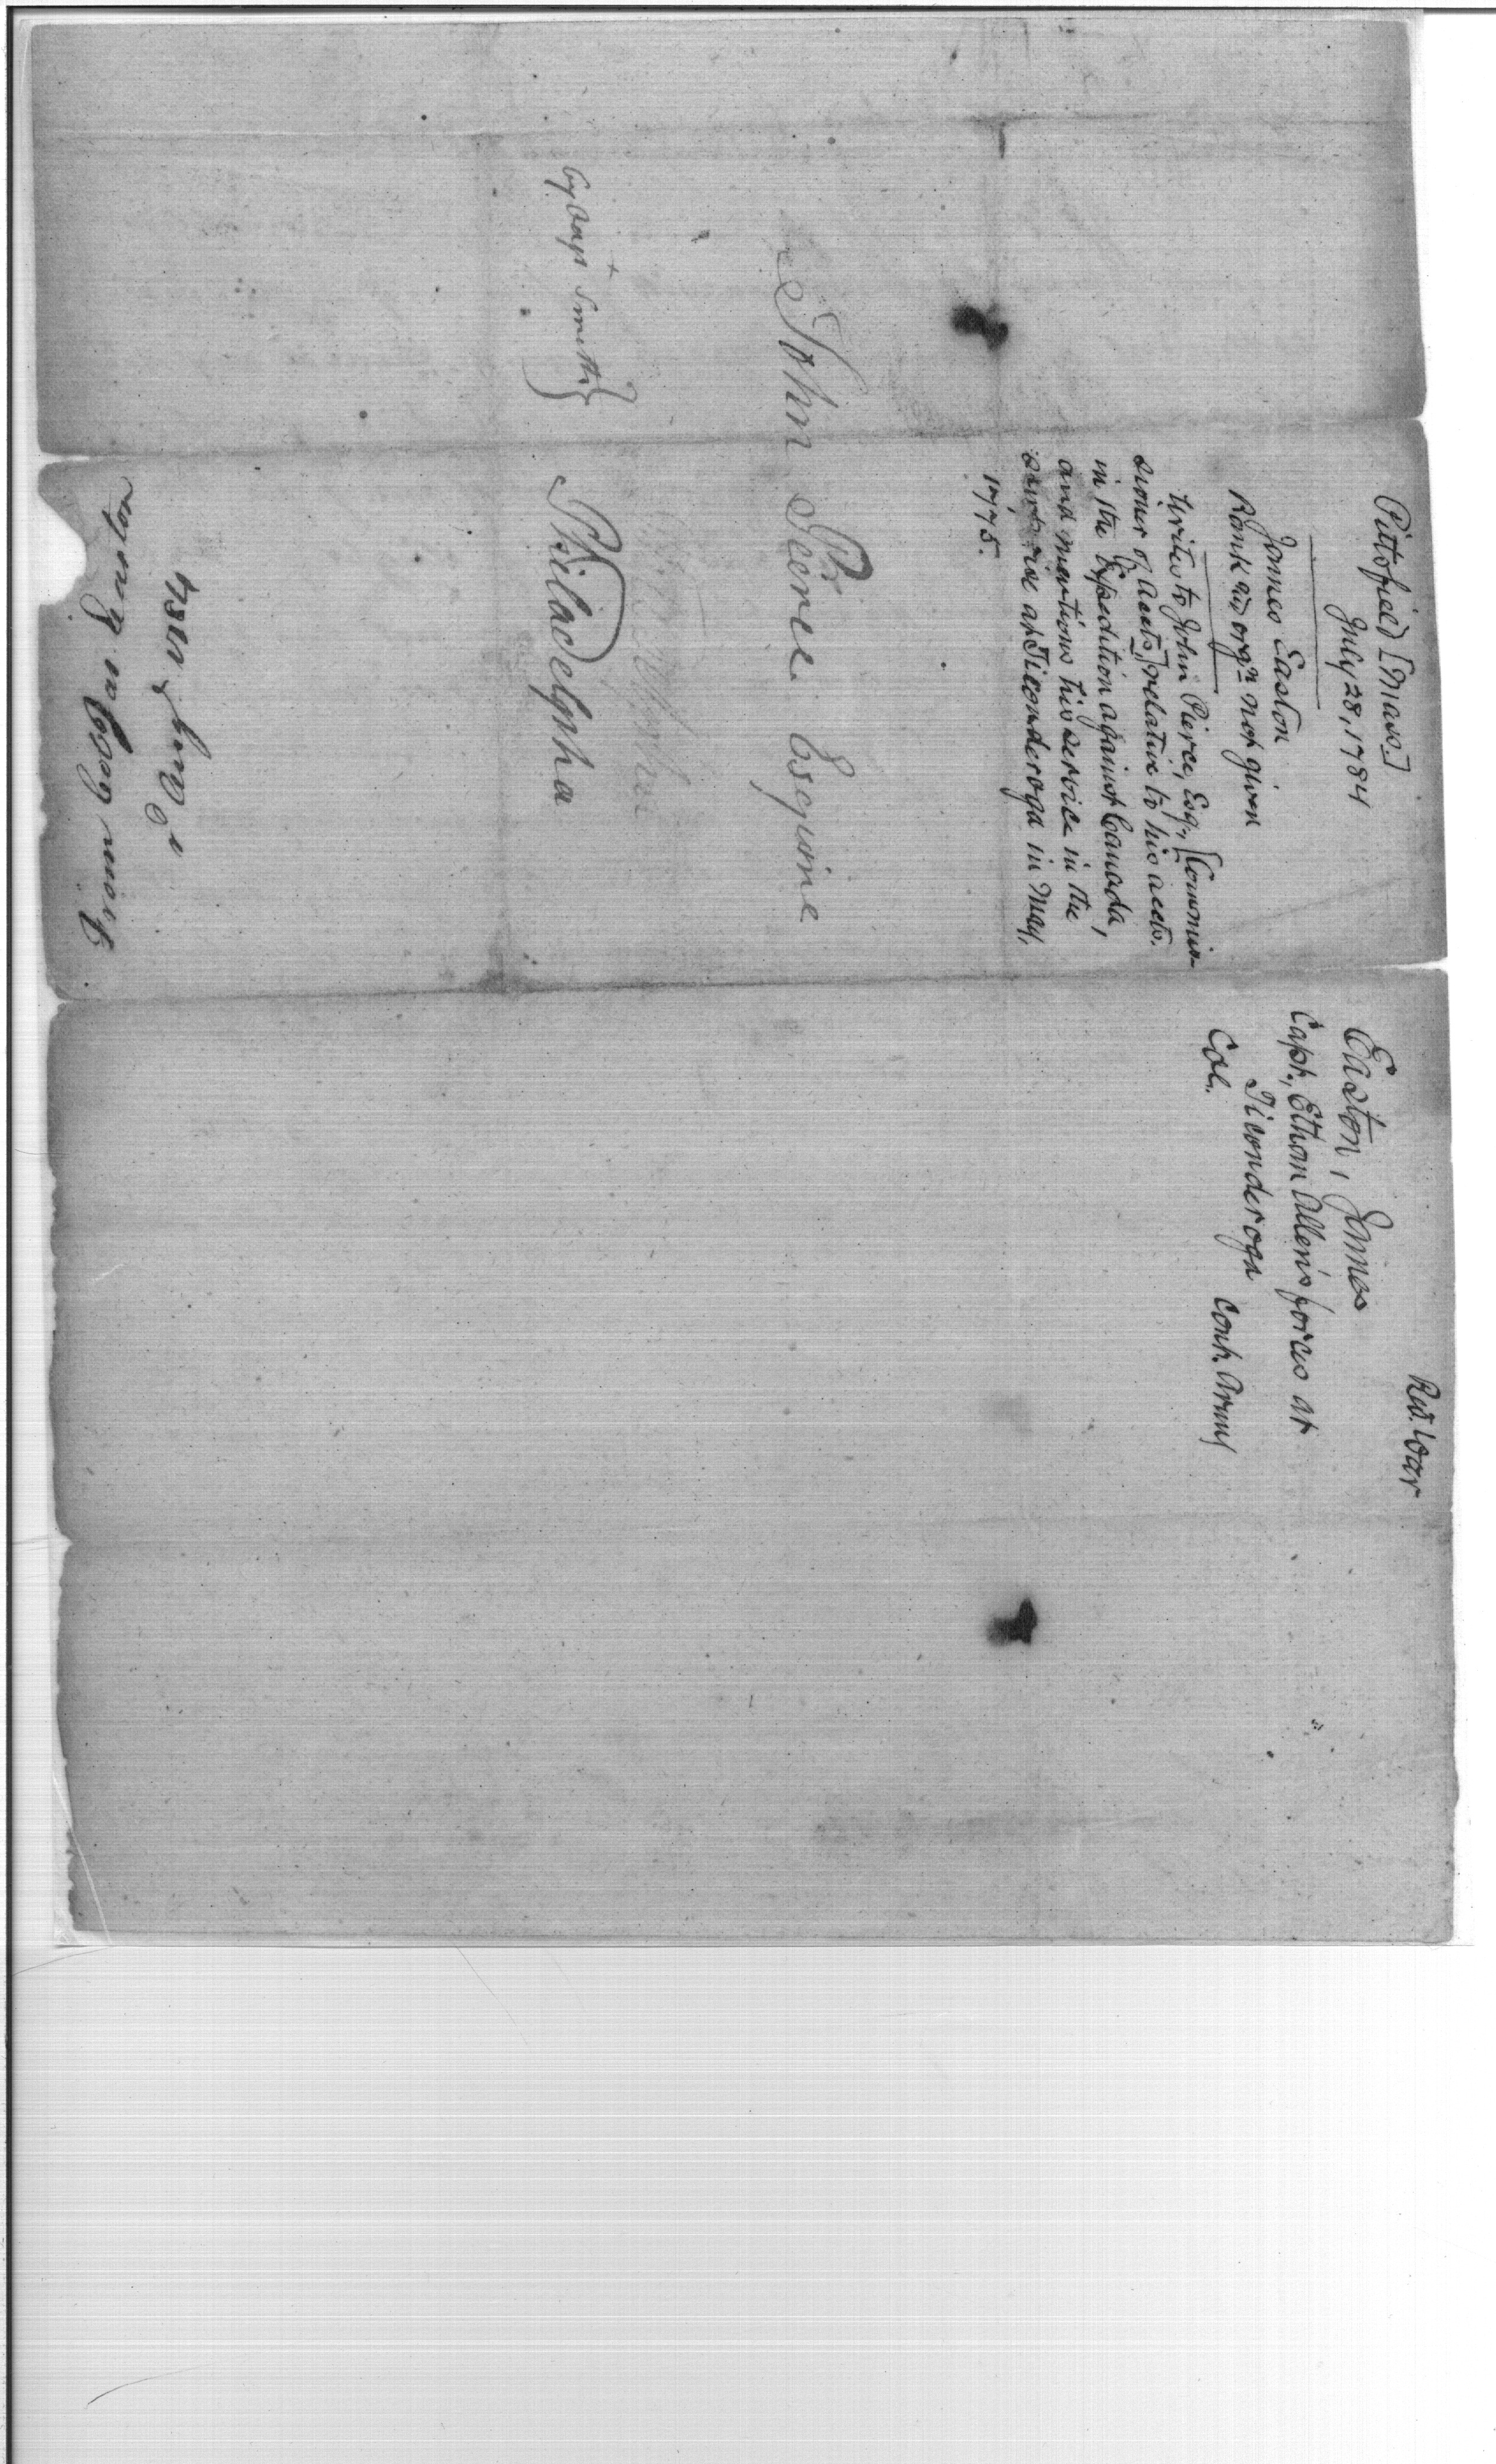 Rev. War
Easton, James
Capt., Ethan Allen's forces at
Ticonderoga
Col. Cont. Army
Pittsfield [Mass.]
July 28, 1784
James Easton
Rank and orgn not given
Writes to John Pierce, Esq., [Commis-
sioner of Accts.] relative to his accts.
in the Expedition against Canada,
and mentions his service in the
enterprise at Ticonderoga in May,
1775.
John Pierce Esquire
Philadelphia
by Capt Smith}
From Colol James Easton
2 Augt 1784